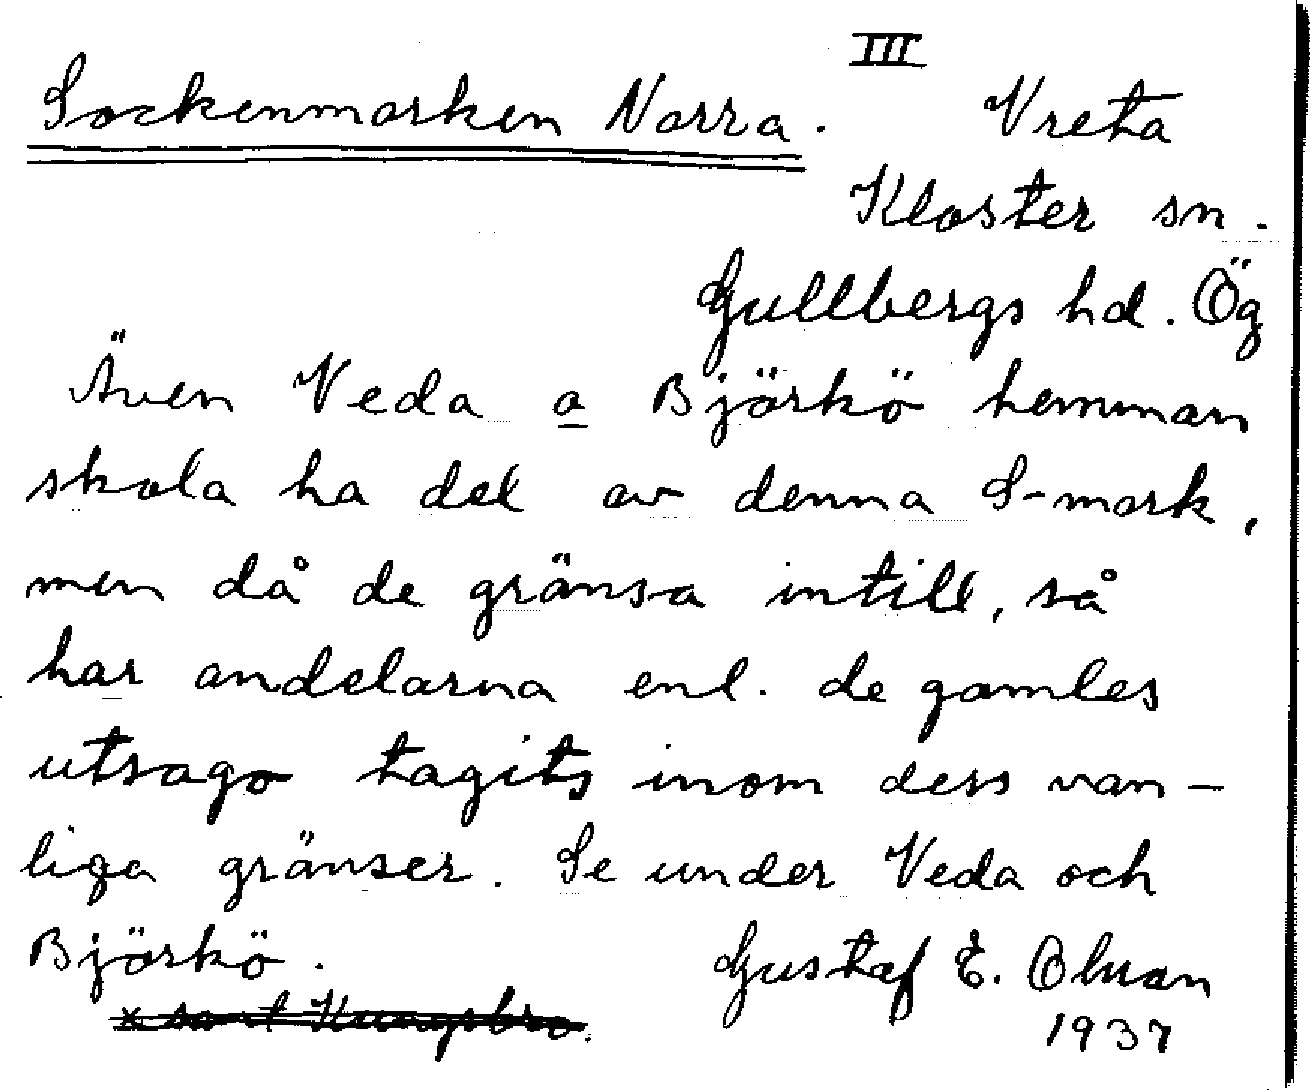 III
Sockenmarken Norra. Vreta
Kloster sn.
Gullbergs hd. Ög
Även Veda a Björkö hemman
skola ha del av denna S-mark,
men då de gränsa intill, så
har andelarna enl. de gamles
utsago tagits inom dess van-
liga gränser. Se under Veda och
Björkö. Gustaf E. Olsson
x samt Kungsbro.
1937